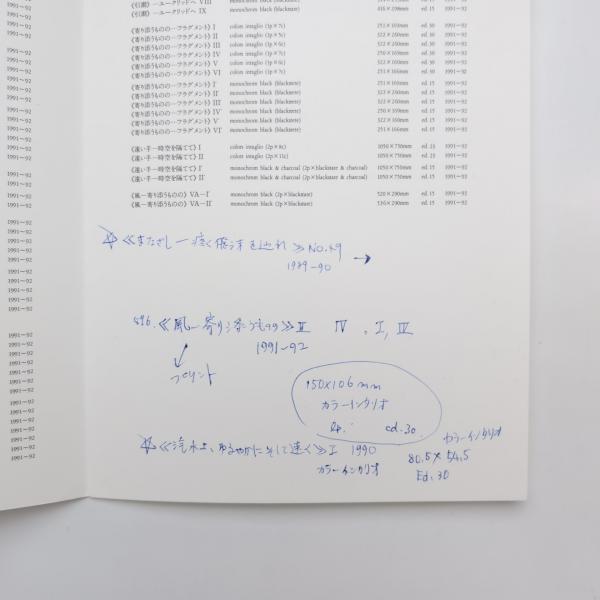 1991〜92
1991〜92
1991〜92
1991〜92
1991〜92
1991〜92
1991〜92
1991〜92
1991〜92
1991〜92
1991〜92
1991〜92
1991〜92
1991〜92
1991〜92
1991〜92
1991〜92
1991〜92
1991〜92
1991〜92
1991〜92
1991〜92
1991〜92
1991〜92
1991〜92
1991〜92
1991〜92
1991〜92
1991〜92
1991〜92
《引潮》—ユークリッドへ VIII monochrom black (blackstate) ed.15 1991〜92
《引潮》—ユークリッドへ IX monochrom black (blackstate) ed.15 1991〜92
《寄り添うものの—フラグメント》I colon intaglio 251×166mm ed.30 1991〜92
《寄り添うものの—フラグメント》II colon intaglio 322×260mm ed.30 1991〜92
《寄り添うものの—フラグメント》III colon intaglio 322×260mm ed.30 1991〜92
《寄り添うものの—フラグメント》IV colon intaglio 250×169mm ed.30 1991〜92
《寄り添うものの—フラグメント》V colon intaglio 322×260mm ed.30 1991〜92
《寄り添うものの—フラグメント》VI colon intaglio 251×166mm ed.30 1991〜92
《寄り添うものの—フラグメント》I' monochrom black (blackstate) 251×166mm ed.15 1991〜92
《寄り添うものの—フラグメント》II' monochrom black (blackstate) 322×260mm ed.15 1991〜92
《寄り添うものの—フラグメント》III' monochrom black (blackstate) 322×260mm ed.15 1991〜92
《寄り添うものの—フラグメント》IV' monochrom black (blackstate) 250×169mm ed.15 1991〜92
《寄り添うものの—フラグメント》V' monochrom black (blackstate) 322×260mm ed.15 1991〜92
《寄り添うものの—フラグメント》VI' monochrom black (blackstate) 251×166mm ed.15 1991〜92
《遠い手—時空を隔てて》I colon intaglio (2p×8c) 1050×750mm ed.25 1991〜92
《遠い手—時空を隔てて》II colon intaglio (2p×11c) 1050×750mm ed.25 1991〜92
《遠い手—時空を隔てて》I' monochrom black & charcoal (2p×blackstate & charcoal) 1050×750mm ed.15 1991〜92
《遠い手—時空を隔てて》II' monochrom black & charcoal (2p×blackstate & charcoal) 1050×750mm ed.15 1991〜92
《風—寄り添うものの》VA—I' monochrom black (2p×blackstate) 520×290mm ed.15 1991〜92
《風—寄り添うものの》VA—II' monochrom black (2p×blackstate) 536×290mm ed.15 1991〜92
≪まなざし — を逃れ≫ No.49 →
1989-90
596. ≪風—寄り添うものの≫ II IV . I, IV
1991-92
プリント
150×106mm
カラーインタリオ
ed.30
≪汽水上、ゆるやかにそして速く≫ I 1990
カラーインタリオ
カラーインタリオ
80.5×54.5
Ed.30